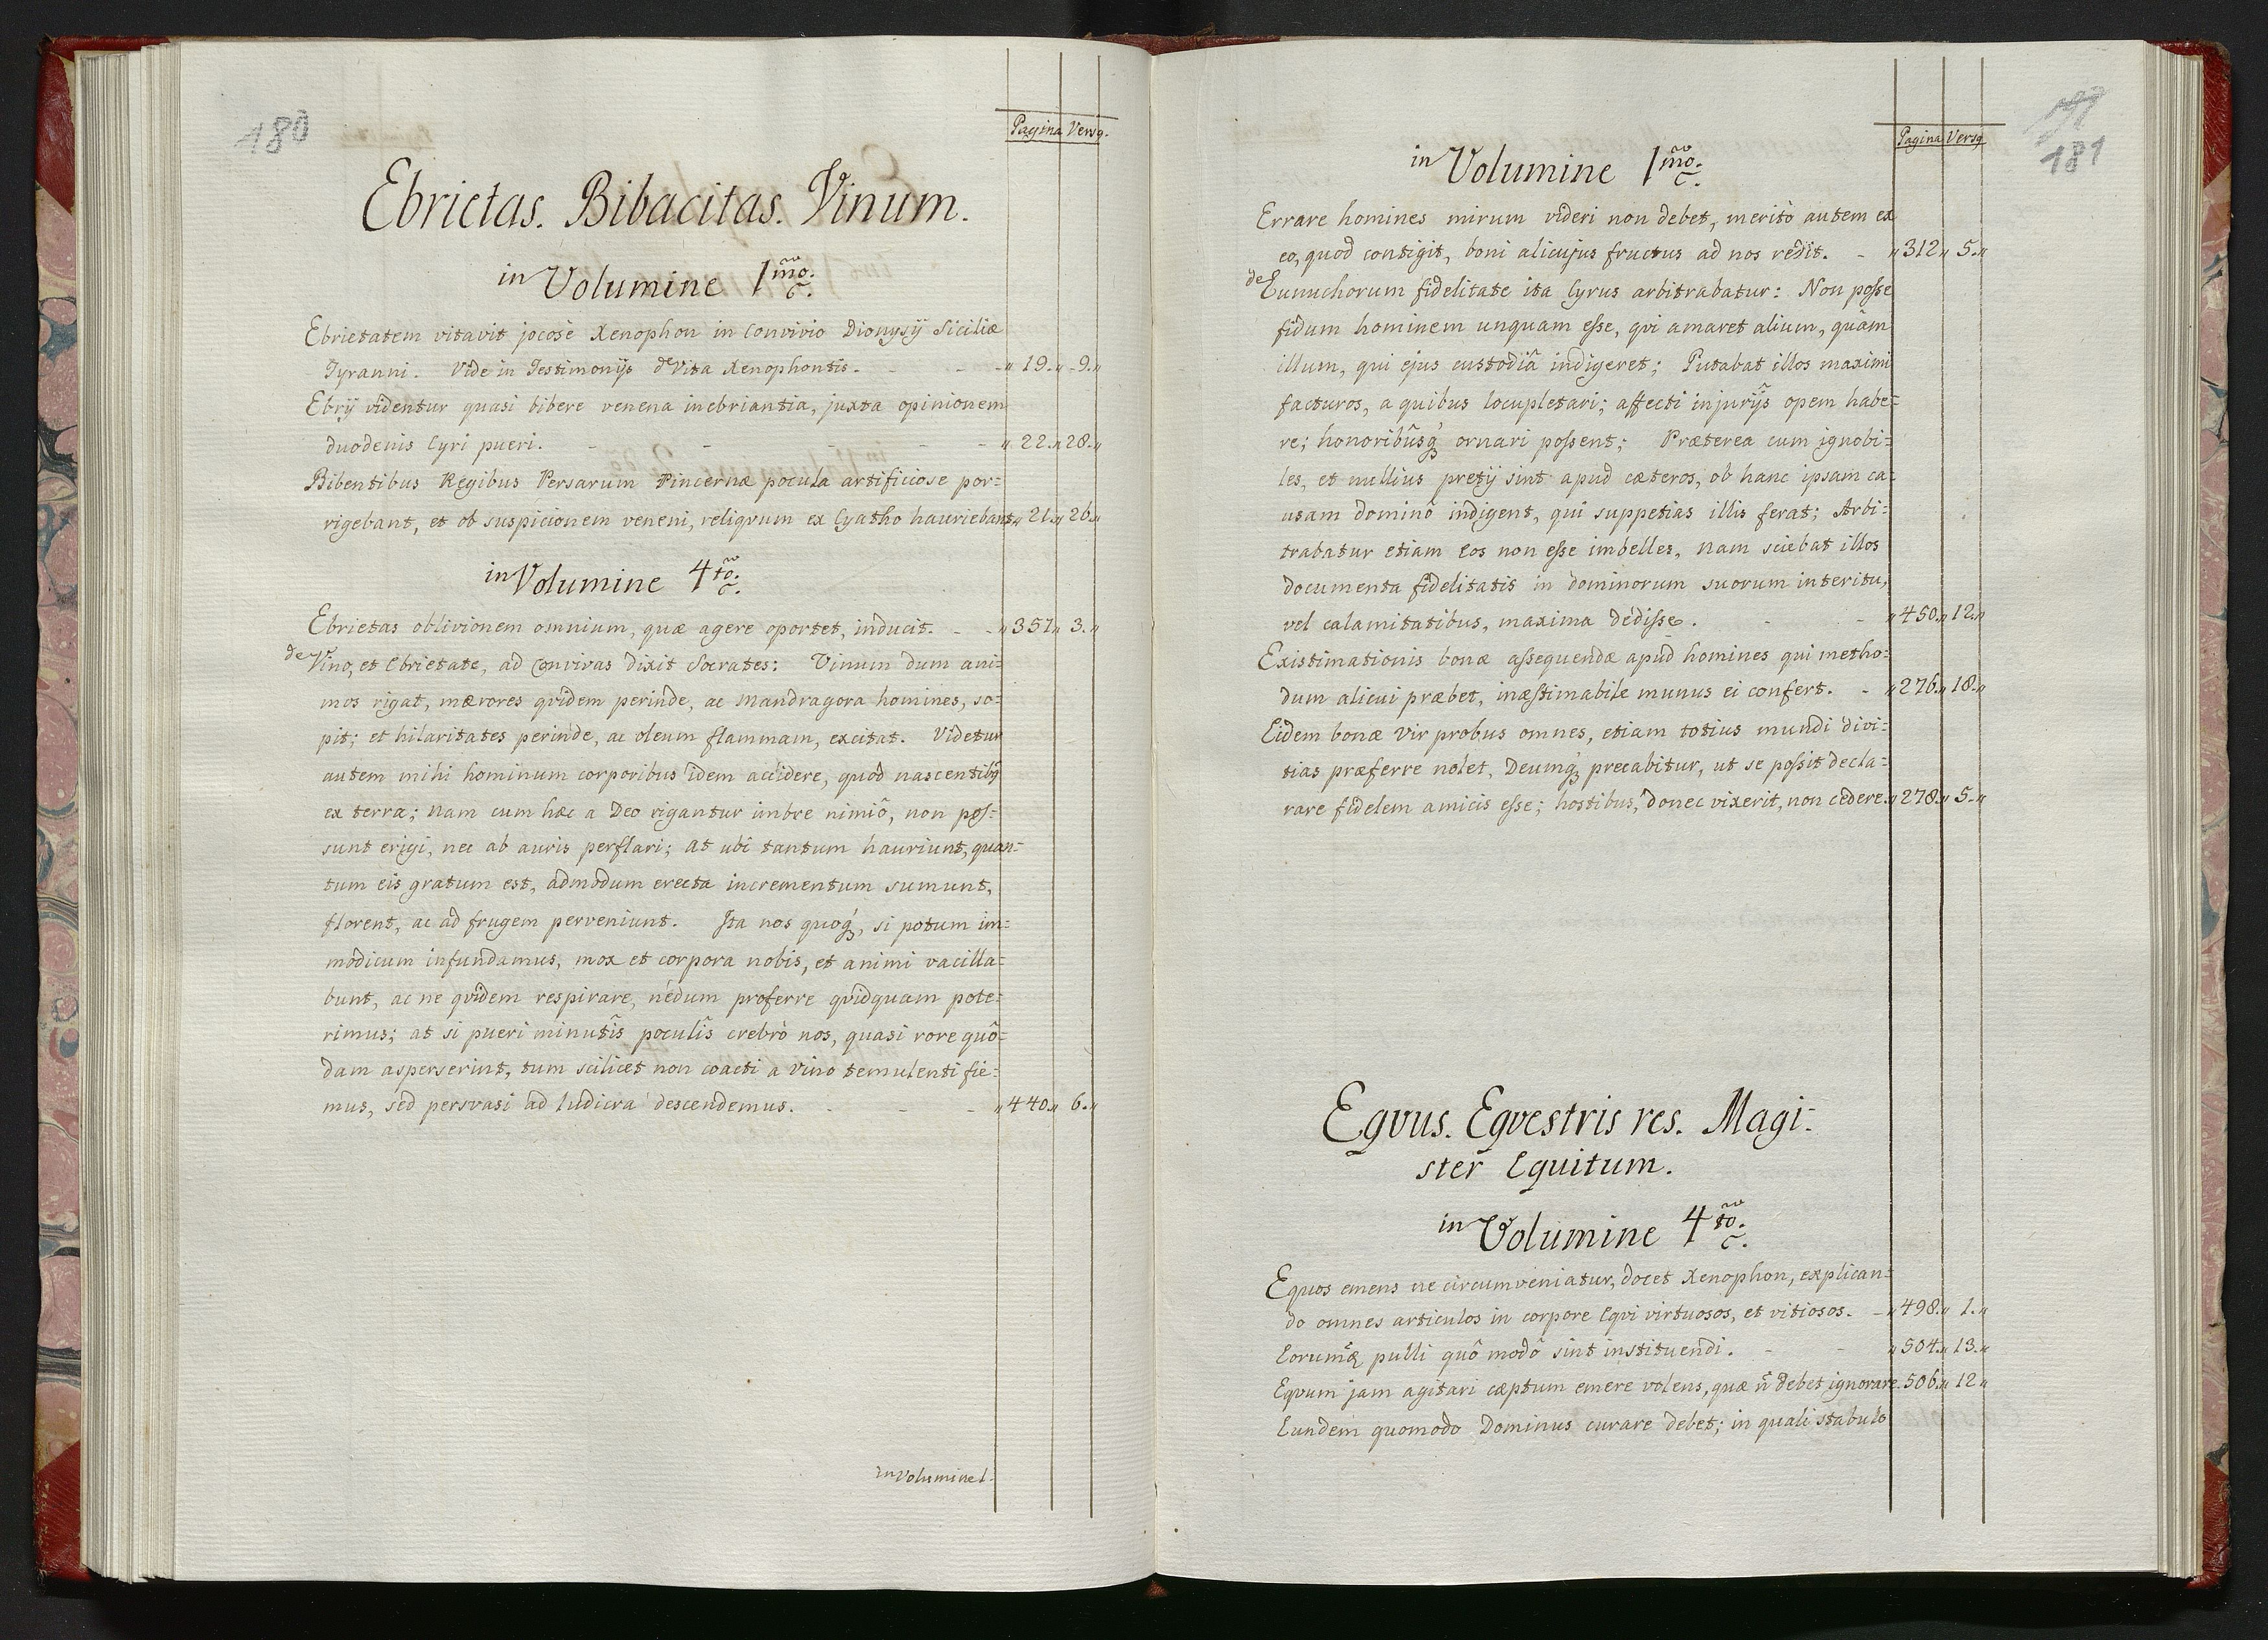 180
Pagina Versq.
Ebrietas. Bibacitas. Vinum.
in Volumine 1mo.
Ebrietatem vitavit jocosè Xenophon in convivio Dionysÿ Siciliæ
Tyranni. Vide in Testimonÿs de Vita Xenophontis. - - - „ 19. „ 9. „
Ebrÿ videntur quasi bibere venena inebriantia, juxta opinionem
duodenis Cyri pueri. - - - - - „ 22. „ 28. „
Bibentibus Regibus Persarum Pincernæ pocula artificiose por=
rigebant, et ob suspicionem veneni, reliqvum ex Cyatho hauriebant. „ 21. „ 26. „
in Volumine 4to.
Ebrietas oblivionem omnium, quæ agere oportet, inducit. - - „ 351. „ 3. „
de Vino, et Ebrietate, ad Convivas dixit Socrates: Vinum dum ani=
mos rigat, mærores qvidem perinde, ac Mandragora homines, so=
pit; et hilaritates perinde, ac oleum flammam, excitat. Videtur
autem mihi hominum corporibus idem accidere, quod nascentibq
ex terra; Nam cum hæc a Deo rigantur imbre nimiô, non pos=
sunt erigi, nec ab auris perflari; at ubi tantum hauriunt, quan=
tum eis gratum est, admodum erecta incrementum sumunt,
florent, ac ad frugem perveniunt. Ita nos quoq́, si potum im=
modicum infundamus, mox et corpora nobis, et animi vacilla=
bunt, ac ne qvidem respirare, nédum proferre qvidquam pote=
rimus; at si pueri minutîs poculîs crebrò nos, quasi rore quô=
dam asperserint, tum scilicet non coacti a vino temulenti fie=
mus, sed persvasi ad ludicra descendemus. - - - „ 440. „ 6. „
in Volumine 1.
181
Pagina Versq
in Volumine 1mo.
Errare homines mirum videri non debet, meritò autem ex
eo, quod contigit, boni alicujus fructus ad nos redit. - „ 312 „ 5. „
de Eunuchorum fidelitate ita Cyrus arbitrabatur: Non posse
fidum hominem unquam esse, qui amaret alium, quàm
illum, qui ejus custodiâ indigeret; Putabat illos maximi
facturos, a quibus locupletari; affecti injurÿs opem habe=
re; honoribûsq́ ornari possent; Præterea cum ignobi=
les, et nullius pretÿ sint apud cæteros, ob hanc ipsam ca=
usam dominô indigent, qui suppetias illis ferat; Arbi=
trabatur etiam Eos non esse imbelles, nam sciebat illos
documenta fidelitatis in dominorum suorum interitu,
vel calamitatibus, maxima dedisse. - - „ 450. „ 12. „
Existimationis bonæ assequendæ apud homines qui metho=
dum alicui præbet, inæstimabile munus ei confert. - „ 276. „ 18. „
Eidem bonæ Vir probus omnes, etiam totius mundi divi=
tias præferre nolet, Deumq́ precabitur, ut se possit decla=
rare fidelem amicis esse; hostibus, donec vixerit, non cedere. „ 278. „ 5. „
Eqvus. Eqvestris res. Magi=
ster Equitum.
in Volumine 4to.
Equos emens ne circumveniatur, docet Xenophon, explican=
do omnes articulos in corpore Eqvi virtuosos, et vitiosos. - „ 498. „ 1. „
Eorumq́ pulli quô modô sint instituendi. - - „ 504. „ 13. „
Eqvum jam agitari cæptum emere volens, quæ n̄ debet ignorare. 506. „ 12 „
Eundem quomodo Dominus curare debet; in quali stabulo